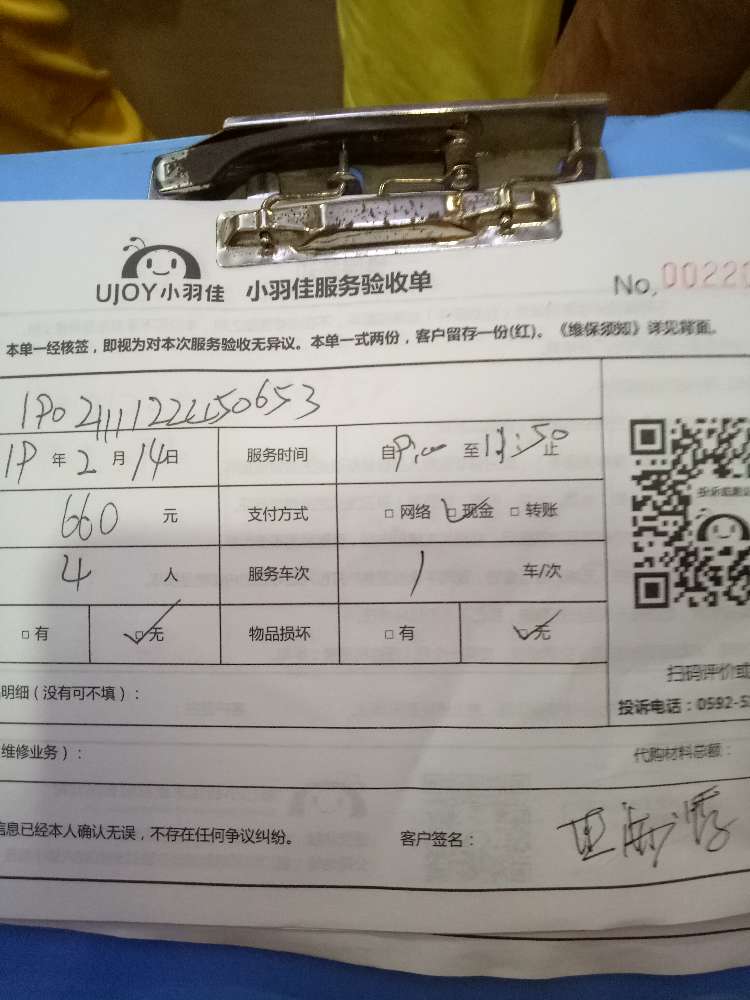 UJOY小羽佳 小羽佳服务验收单 No.00220
本单一经核签，即视为对本次服务验收无异议。本单一式两份，客户留存一份(红)。《维保须知》详见背面。
19年2月14日 服务时间 自9:00至11:50止
660元 支付方式 □网络 □现金 □转账
4人 服务车次 1 车/次
□有 □无 物品损坏 □有 □无
明细（没有可不填）：
扫码评价或
投诉电话：0592-5
维修业务）： 代购材料总额：
信息已经本人确认无误，不存在任何争议纠纷。 客户签名：